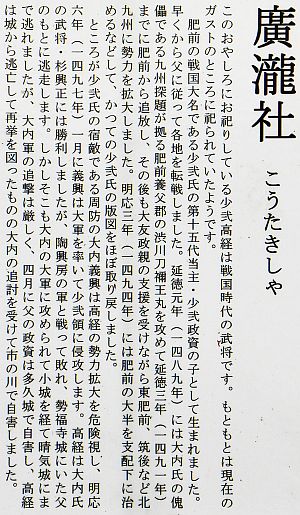 廣瀧社
こうたきしゃ
このおやしろにお祀りしている少弐高経は戦国時代の武将です。もともとは現在の
ガストのところに祀られていたようです。
肥前の戦国大名である少弐氏の第十五代当主・少弐政資の子として生まれました。
早くから父に従って各地を転戦しました。延徳元年（一四八九年）には大内氏の傀
儡である九州探題が拠る肥前養父郡の渋川刀禰王丸を攻めて延徳三年（一四九一）
までに肥前から追放し、その後も大友政親の支援を受けながら東肥前、筑後など北
九州に勢力を拡大しました。明応三年（一四九四年）には肥前の大半を支配下に治
めるなどして、かつての少弐氏の版図をほぼ取り戻しました。
ところが少弐氏の宿敵である周防の大内義興は高経の勢力拡大を危険視し、明応
六年（一四九七年）一月に義興は大軍を率いて少弐領に侵攻します。高経は大内氏
の武将・杉興正には勝利しましたが、陶興房の軍と戦って敗れ、勢福寺城にいた父
のもとに逃走します。しかしそこも大内の大軍に攻められて小城を経て晴気城にま
で逃れましたが、大内軍の追撃は厳しく、四月に父の政資は多久城で自害し、高経
は城から逃亡して再挙を図ったものの大内の追討を受けて市の川で自害しました。